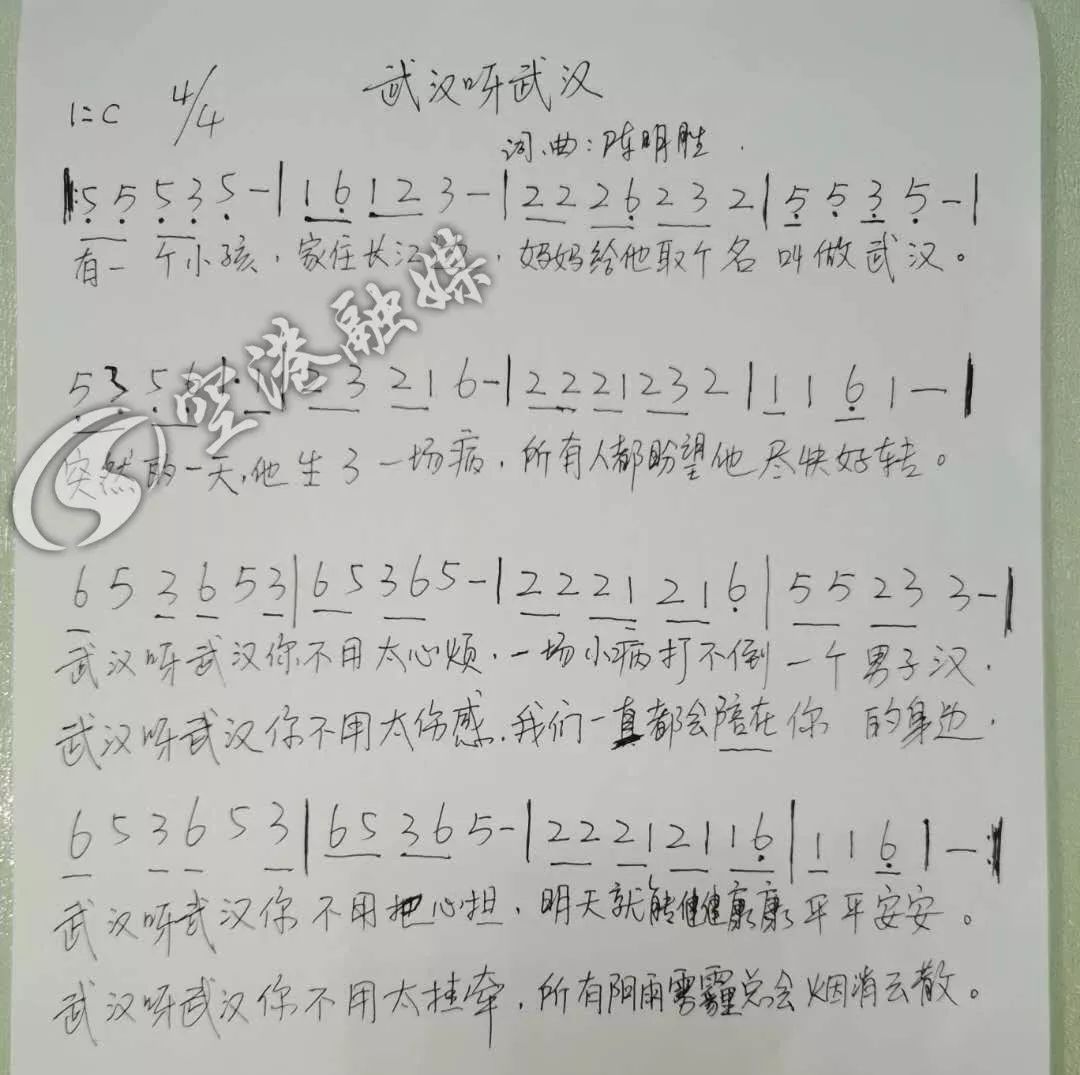 武汉呀武汉
1=C 4/4
词、曲：陈明胜
|: 5 5 5 3 5 - | 1 6 1 2 3 - | 2 2 2 6 2 3 2 | 5 5 3 5 - |
有一个小孩，家住长江，妈妈给他取个名 叫做武汉。
5 3 5 6 1 | 2 3 2 1 6 - | 2 2 2 1 2 3 2 | 1 1 6 1 - |
突然的一天，他生了一场病，所有人都盼望他尽快好转。
6 5 3 6 5 3 | 6 5 3 6 5 - | 2 2 2 1 2 1 6 | 5 5 2 3 3 - |
武汉呀武汉你不用太心烦，一场小病打不倒一个男子汉，
武汉呀武汉你不用太伤感，我们一直都会陪在你 的身边，
6 5 3 6 5 3 | 6 5 3 6 5 - | 2 2 2 1 2 1 1 6 | 1 1 6 1 - :|
武汉呀武汉你不用把心担，明天就能健健康康平平安安。
武汉呀武汉你不用太挂牵，所有阴雨雾霾总会烟消云散。
空港融媒